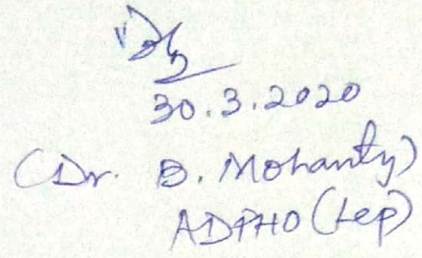 30.3.2020
(Dr. B. Mohanty)
ADPHO (Lep)